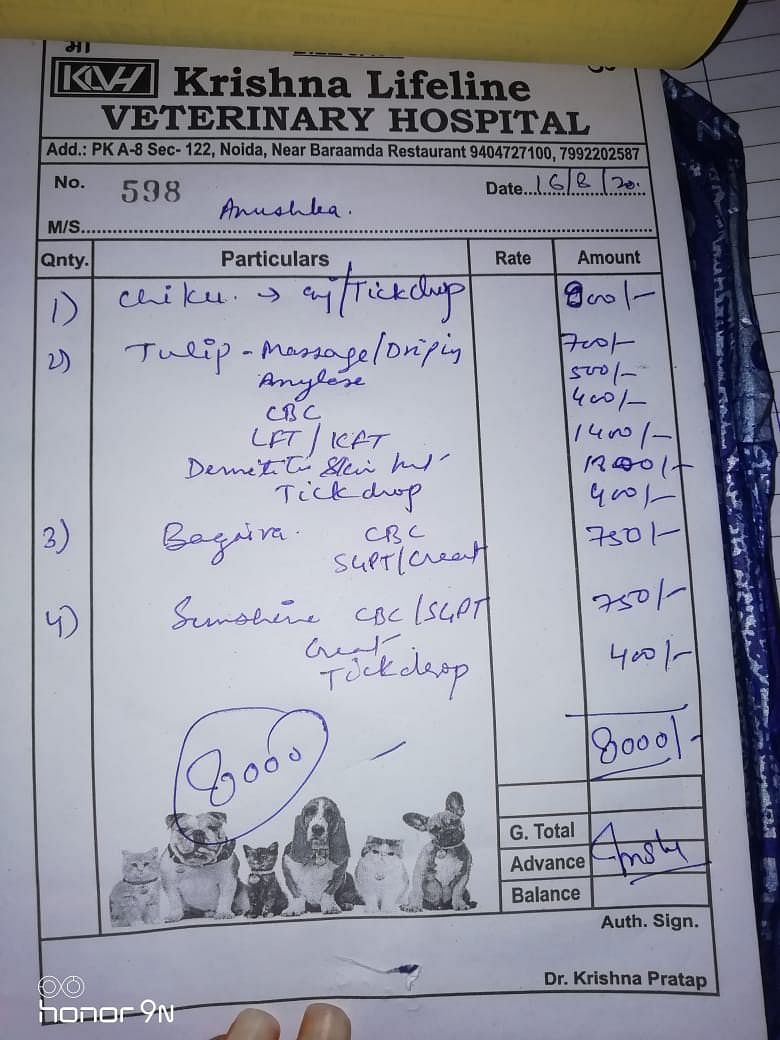 मो
KLVH Krishna Lifeline
VETERINARY HOSPITAL
Add.: PK A-8 Sec- 122, Noida, Near Baraamda Restaurant 9404727100, 7992202587
No. 598 Date...16/8/20.
M/S. Anushka.
Qnty. Particulars Rate Amount
1) Chiku. → inj/Tickdrop 800/-
2) Tulip - Massage/Driping 700/-
Amylase 500/-
CBC 400/-
LFT / KFT 1400/-
Skin 1/-
Tickdrop 400/-
3) Bagira. CBC 750/-
SGPT/Creat
4) Sunshine CBC/SGPT 750/-
Creat
Tickdrop 400/-
8000/-
8000
G. Total
Advance
Balance
Auth. Sign.
Dr. Krishna Pratap
honor 9N